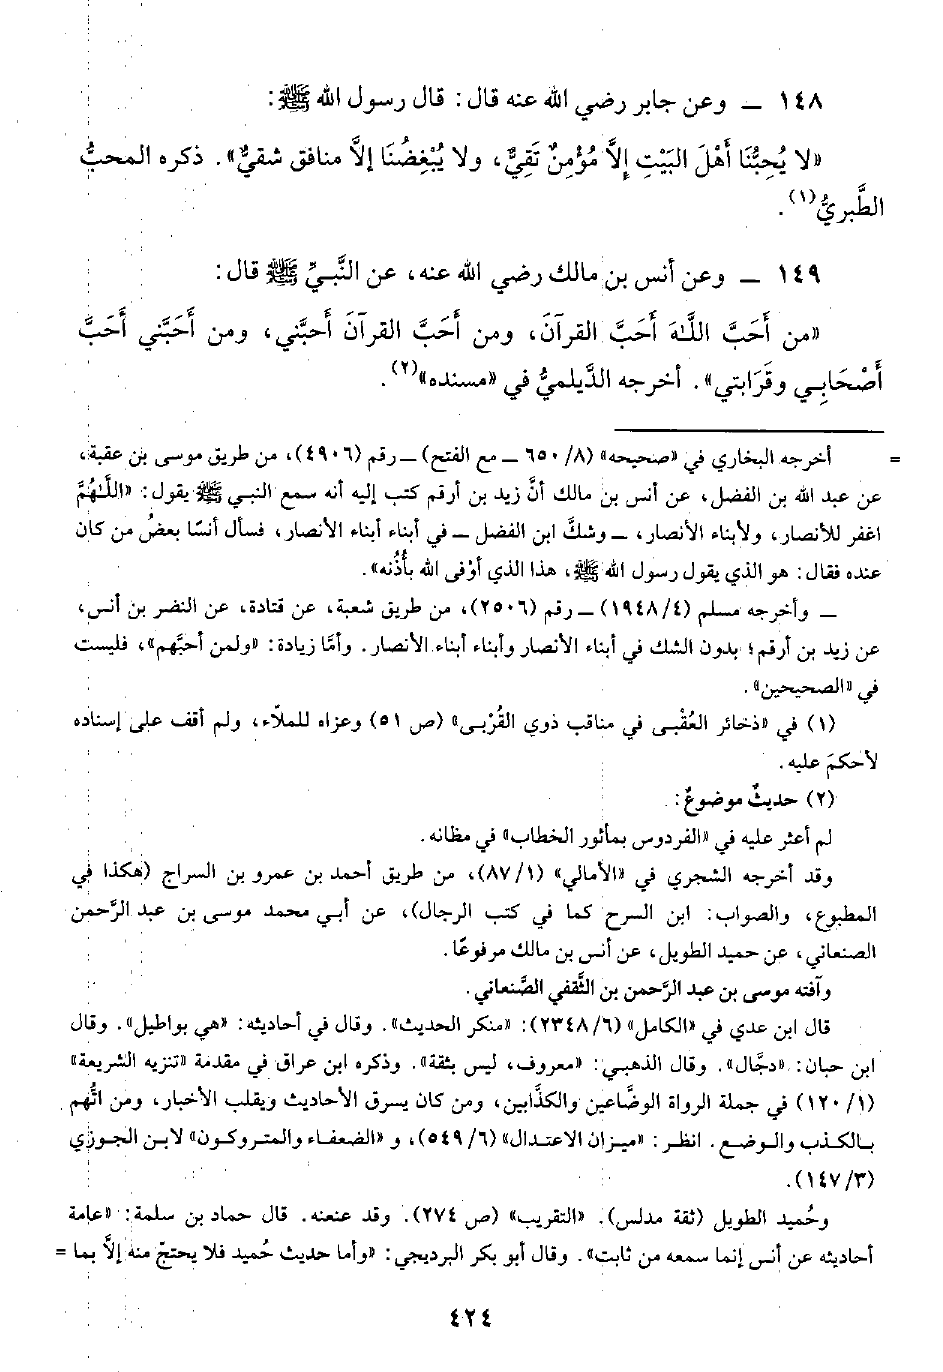 ١٤٨ ــ وعن جابر رضي الله عنه قال: قال رسول الله ﷺ:
«لا يُحِبُّنَا أَهْلَ البَيْتِ إِلاَّ مُؤْمِنٌ تَقِيٌّ، ولا يُبْغِضُنَا إلاَّ منافق شقيٌّ». ذكره المحبُّ
الطَّبريُّ(١).
١٤٩ ــ وعن أنس بن مالك رضي الله عنه، عن النَّبيِّ ﷺ قال:
«من أَحَبَّ اللَّـهَ أَحَبَّ القرآنَ، ومن أَحَبَّ القرآنَ أَحبَّني، ومن أَحَبَّني أَحَبَّ
أَصْحَابِي وقَرَابتي». أخرجه الدَّيلميُّ في «مسنده»(٢).
= أخرجه البخاري في «صحيحه» (٨/ ٦٥٠ ــ مع الفتح) ــ رقم (٤٩٠٦)، من طريق موسى بن عقبة،
عن عبد الله بن الفضل، عن أنس بن مالك أنَّ زيد بن أرقم كتب إليه أنه سمع النبي ﷺ يقول: «اللَّـهُمَّ
اغفر للأنصار، ولأبناء الأنصار، ــ وشكَّ ابن الفضل ــ في أبناء أبناء الأنصار، فسأل أنسًا بعضُ من كان
عنده فقال: هو الذي يقول رسول الله ﷺ، هذا الذي أوْفى الله بأُذُنه».
ــ وأخرجه مسلم (٤/ ١٩٤٨) ــ رقم (٢٥٠٦)، من طريق شعبة، عن قتادة، عن النضر بن أنس،
عن زيد بن أرقم؛ بدون الشك في أبناء الأنصار وأبناء أبناء الأنصار. وأمَّا زيادة: «ولمن أحبَّهم»، فليست
في «الصحيحين».
(١) في «ذخائر العُقْبى في مناقب ذوي القُرْبى» (ص ٥١) وعزاه للملّاء، ولم أقف على إسناده
لأحكمَ عليه.
(٢) حديثٌ موضوعٌ:
لم أعثر عليه في «الفردوس بمأثور الخطاب» في مظانه.
وقد أخرجه الشجري في «الأمالي» (١/ ٨٧)، من طريق أحمد بن عمرو بن السراج (هكذا في
المطبوع، والصواب: ابن السرح كما في كتب الرجال)، عن أبي محمد موسى بن عبد الرَّحمن
الصنعاني، عن حميد الطويل، عن أنس بن مالك مرفوعًا.
وآفته موسى بن عبد الرَّحمن بن الثَّقفي الصَّنعاني.
قال ابن عدي في «الكامل» (٦/ ٢٣٤٨): «منكر الحديث». وقال في أحاديثه: «هي بواطيل». وقال
ابن حبان: «دجَّال». وقال الذهبي: «معروف، ليس بثقة». وذكره ابن عراق في مقدمة «تنزيه الشريعة»
(١/ ١٢٠) في جملة الرواة الوضَّاعين والكذَّابين، ومن كان يسرق الأحاديث ويقلب الأخبار، ومن اتُّهم
بالكذب والوضع. انظر: «ميزان الاعتدال» (٦/ ٥٤٩)، و «الضعفاء والمتروكون» لابن الجوزي
(٣/ ١٤٧).
وحُميد الطويل (ثقة مدلس). «التقريب» (ص ٢٧٤). وقد عنعنه. قال حماد بن سلمة: «عامة
أحاديثه عن أنس إنما سمعه من ثابت». وقال أبو بكر البرديجي: «وأما حديث حُميد فلا يحتجّ منه إلاَّ بما =
٤٢٤